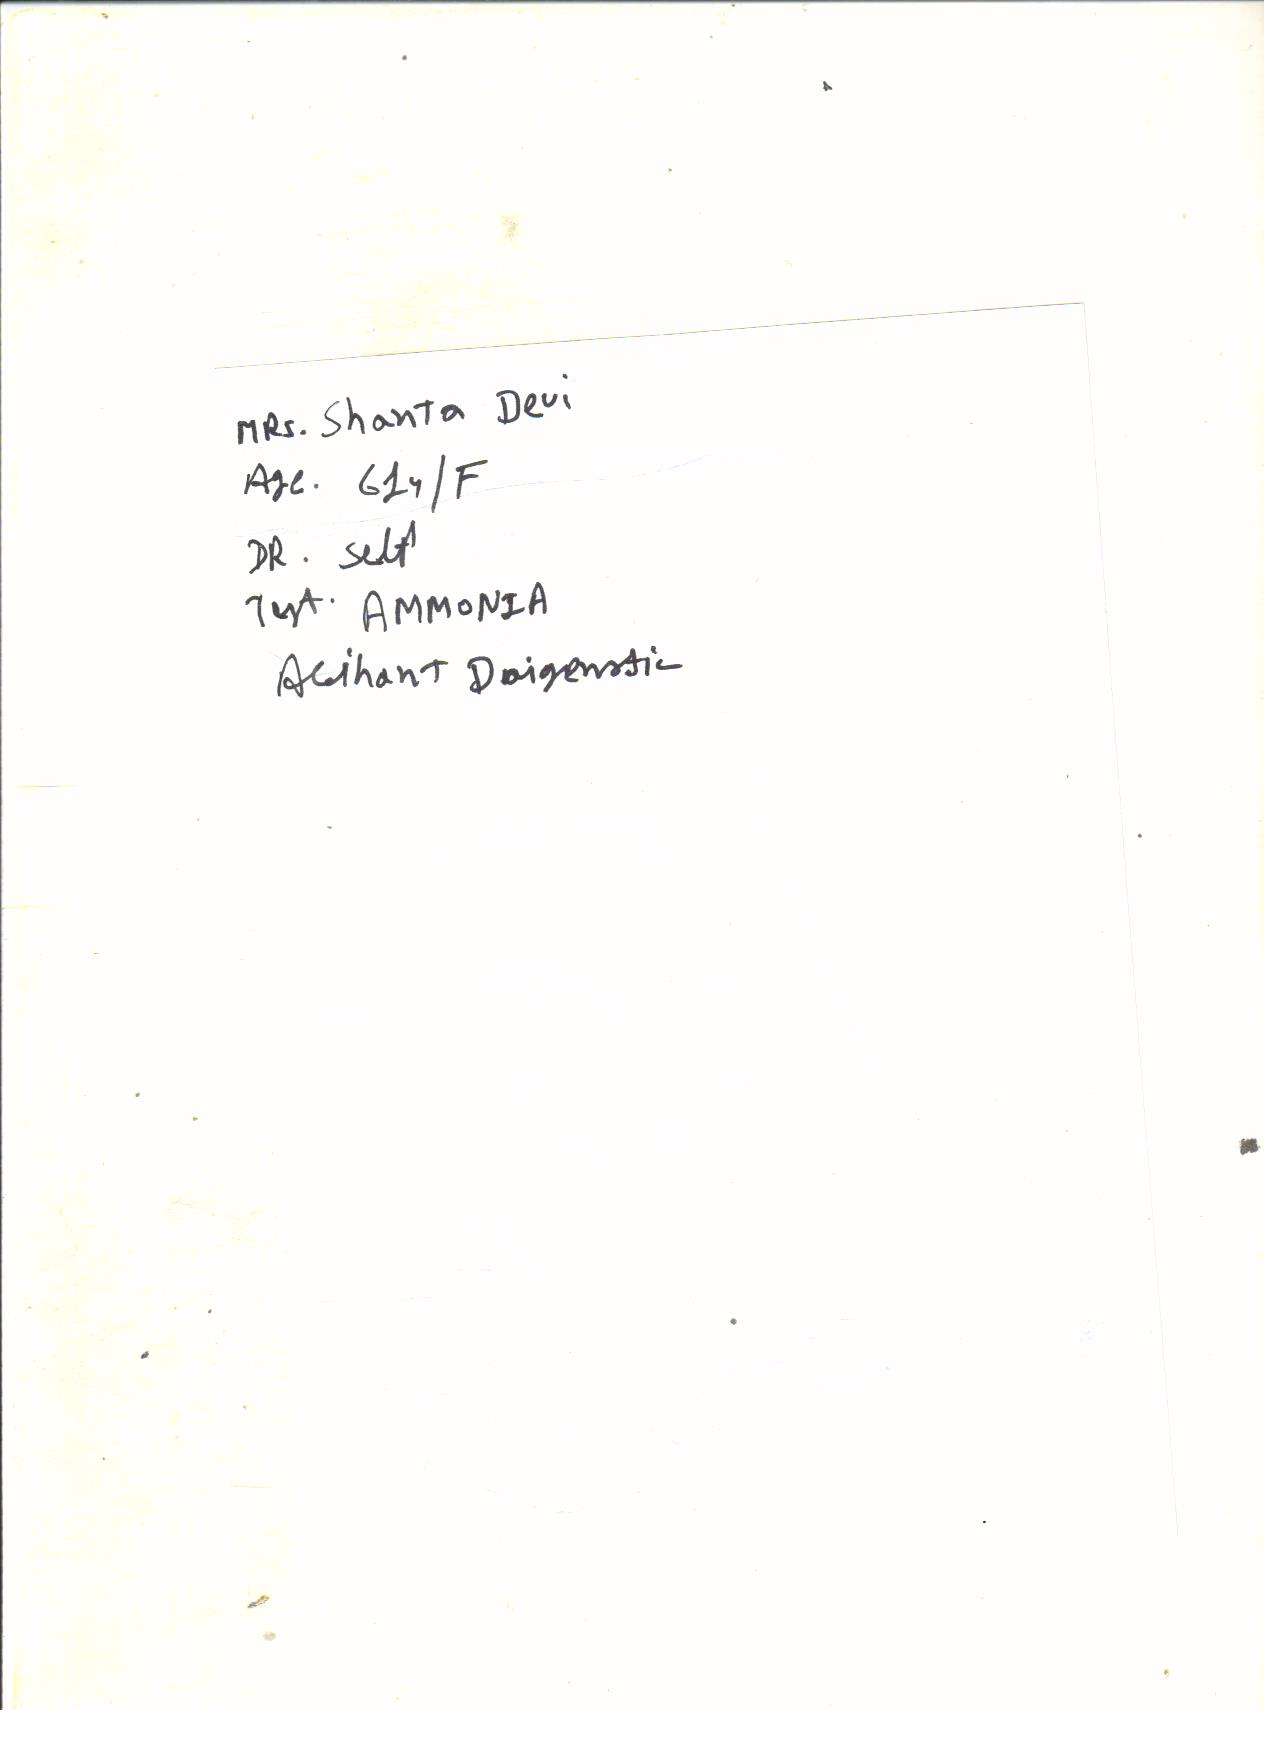 MRs. Shanta Devi
Age. 61y/F
DR. self
Test. AMMONIA
Arihant Daigenostic